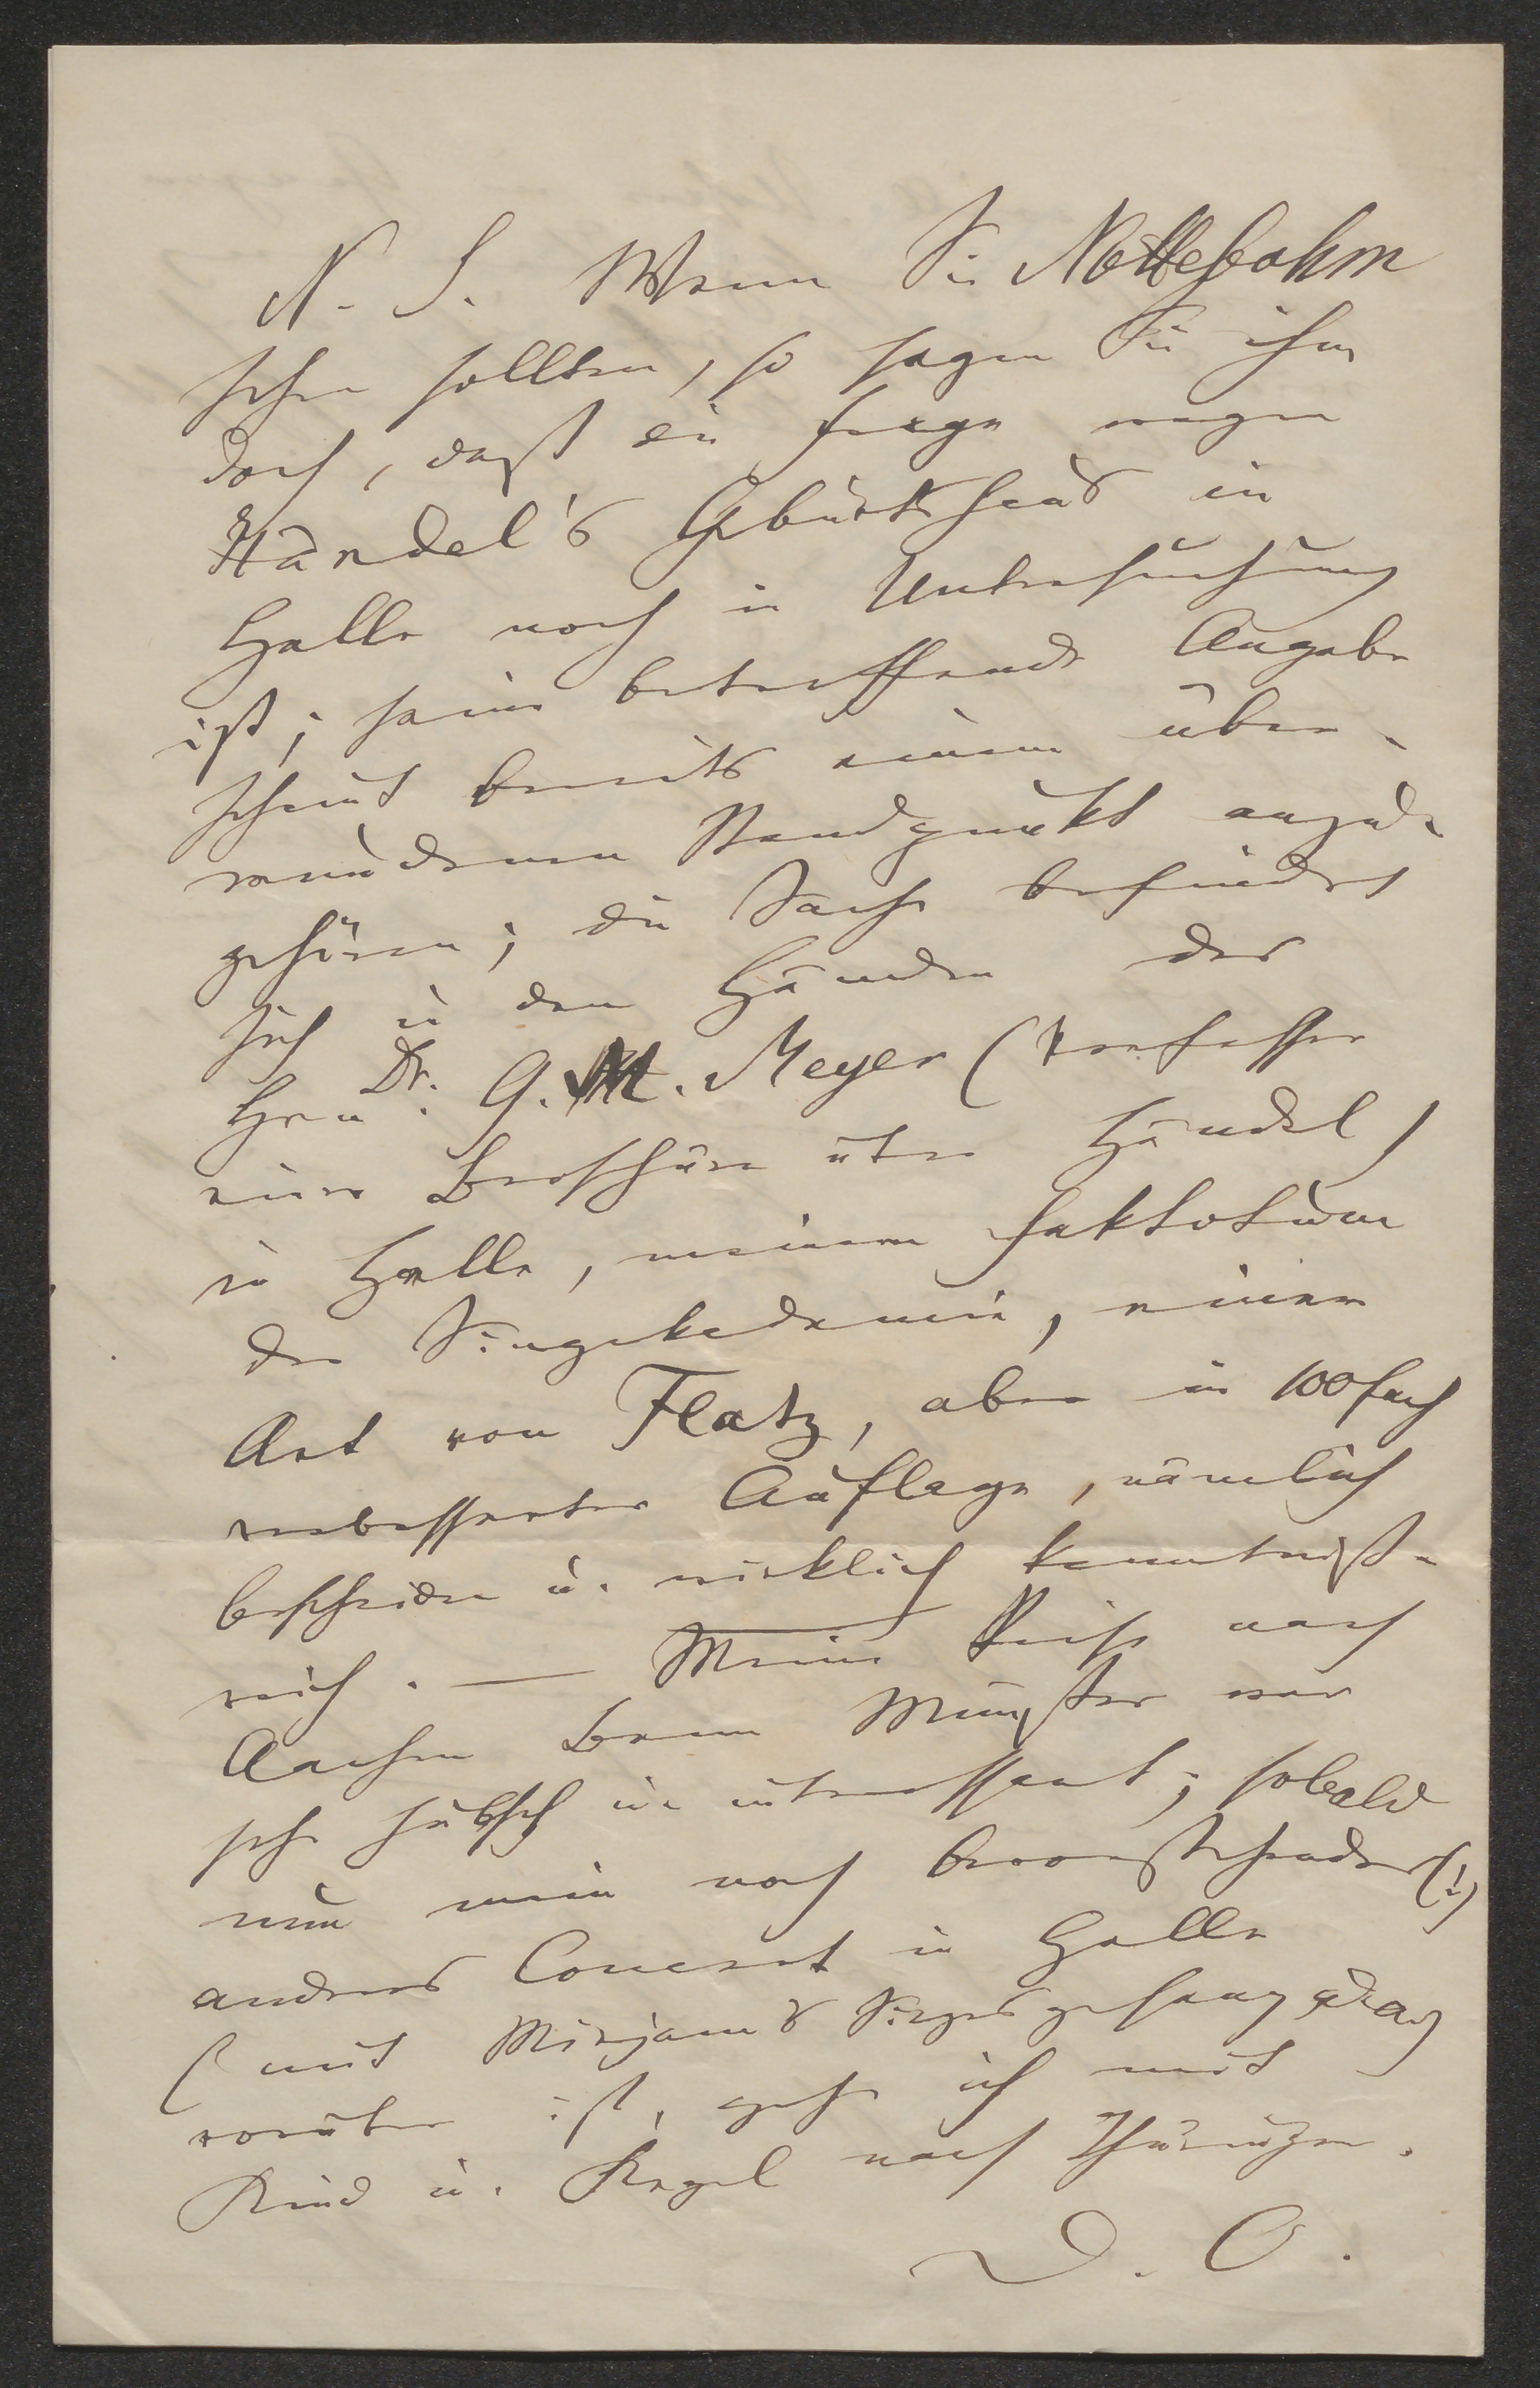 N. S. Wenn Sie Nottebohm
sehen sollten, so sagen Sie ihm
doch, daß die Frage wegen
Händel's Geburtshaus in
Halle noch in Untersuchung
ist; seine betreffende Angabe
scheint bereits einem über-
wundenen Standpunkt anzu-
gehören; die Sache befindet
sich in den Händen des
Hrn. Dr. G. M. Meyer (Verfasser
einer Broschüre über Händel)
in Halle, meinem Faktotum
der Singakademie, einer
Art von Flatz, aber in 100fach
verbesserter Auflage, nämlich
bescheiden u. wirklich kenntniß-
reich. — Meine Reise nach
Aachen Bonn Münster war
sehr hübsch u. interessant; sobald
nun mein noch bevorstehendes (!)
anderes Concert in Halle
(mit Mirjam's Siegesgesang
vorüber ist, gehe ich mit
Kind u. Kegel nach Thüringen.
D. O.